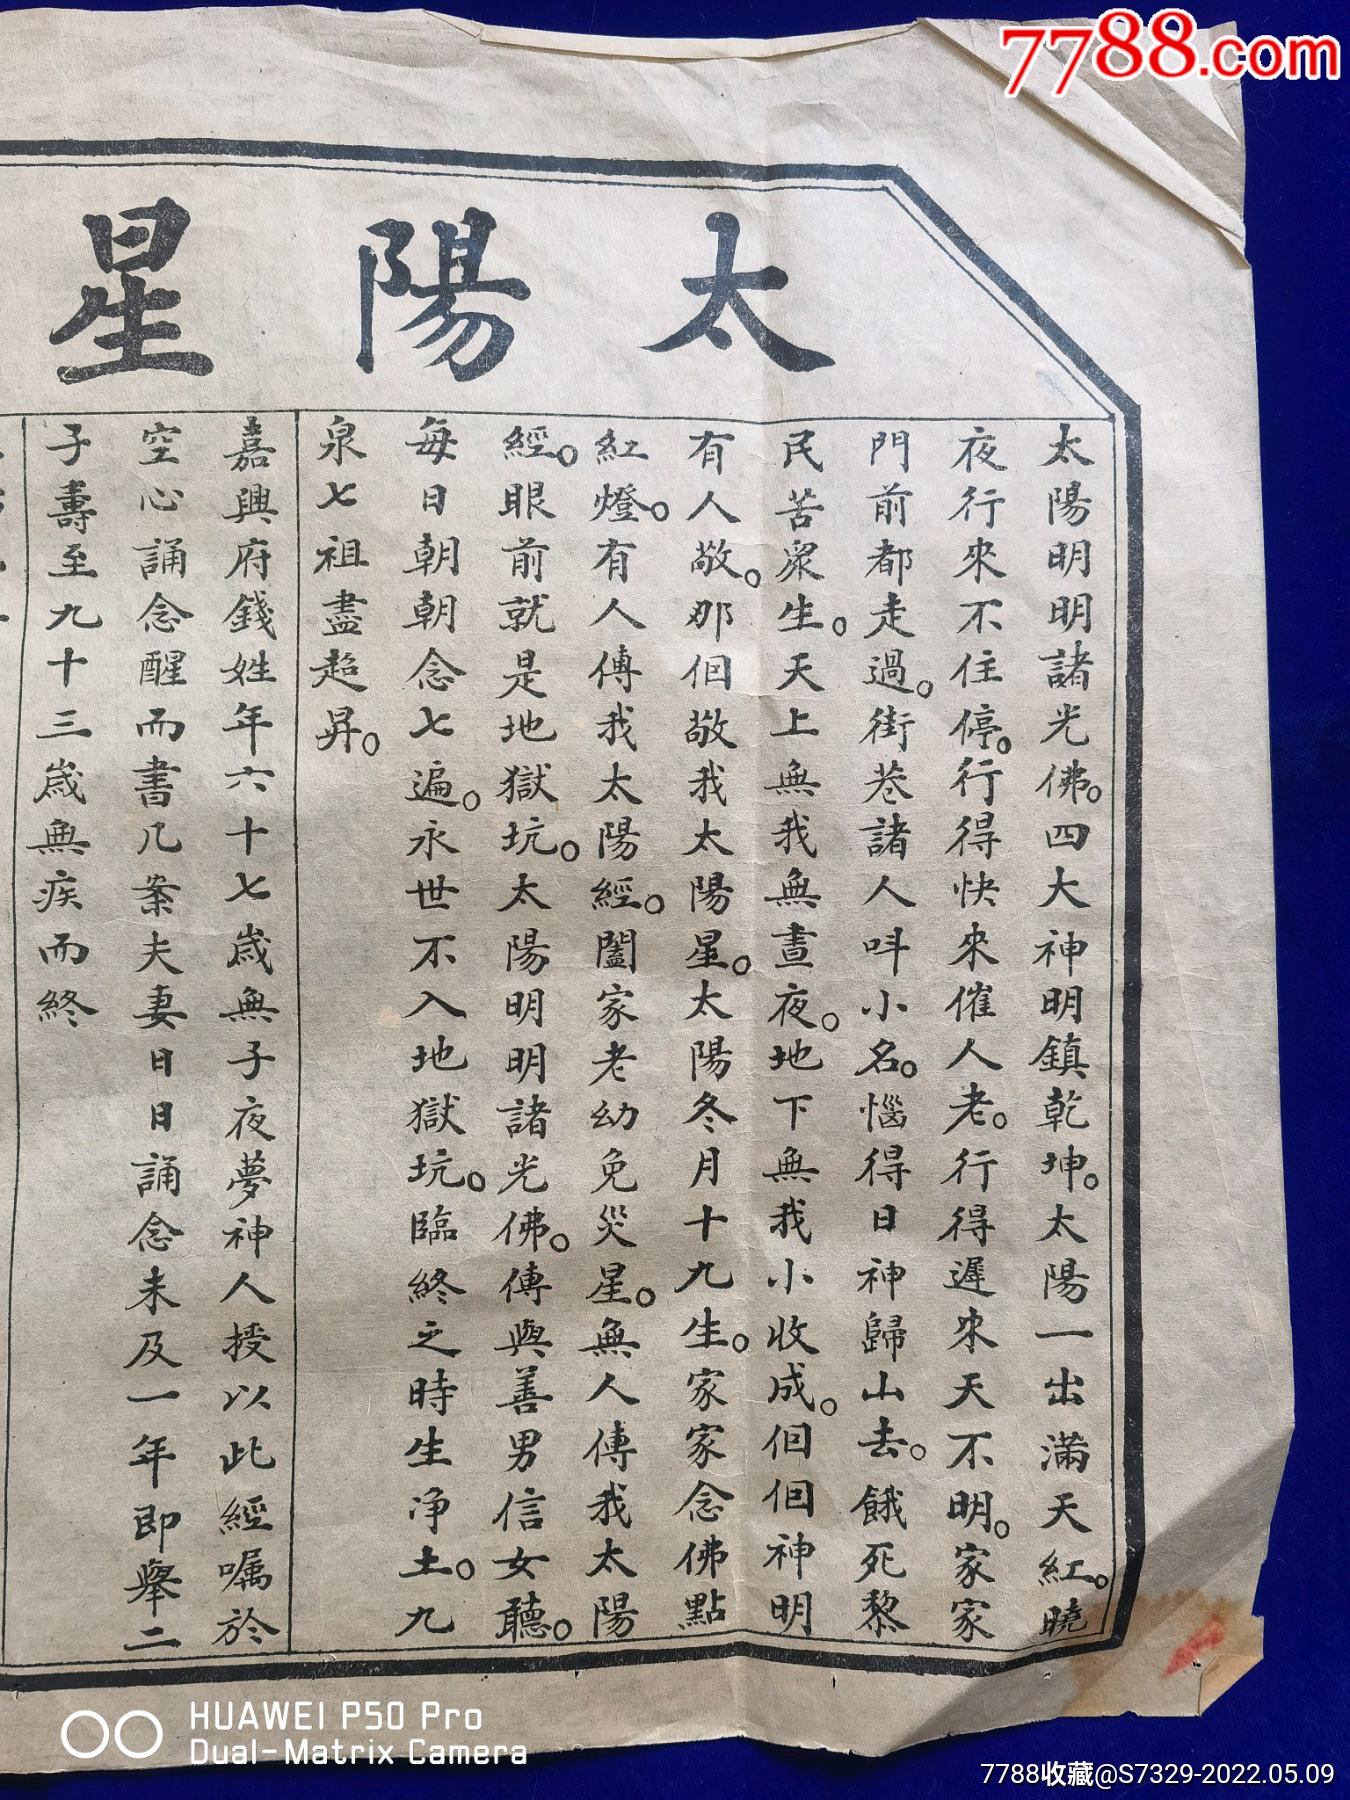 7788.com
太陽星
太陽明明諸光佛。四大神明鎮乾坤。太陽一出滿天紅。曉
夜行來不住停。行得快來催人老。行得遲來天不明。家家
門前都走過。街巷諸人呌小名。惱得日神歸山去。餓死黎
民苦衆生。天上無我無晝夜。地下無我小收成。個個神明
有人敬。那個敬我太陽星。太陽冬月十九生。家家念佛點
紅燈。有人傳我太陽經。闔家老幼免災星。無人傳我太陽
經。眼前就是地獄坑。太陽明明諸光佛。傳與善男信女聽。
每日朝朝念七遍。永世不入地獄坑。臨終之時生净土。九
泉七祖盡超昇。
嘉興府錢姓年六十七歲無子夜夢神人授以此經囑於
空心誦念醒而書几案夫妻日日誦念未及一年即舉二
子壽至九十三歲無疾而終
HUAWEI P50 Pro
Dual-Matrix Camera
7788收藏@S7329-2022.05.09